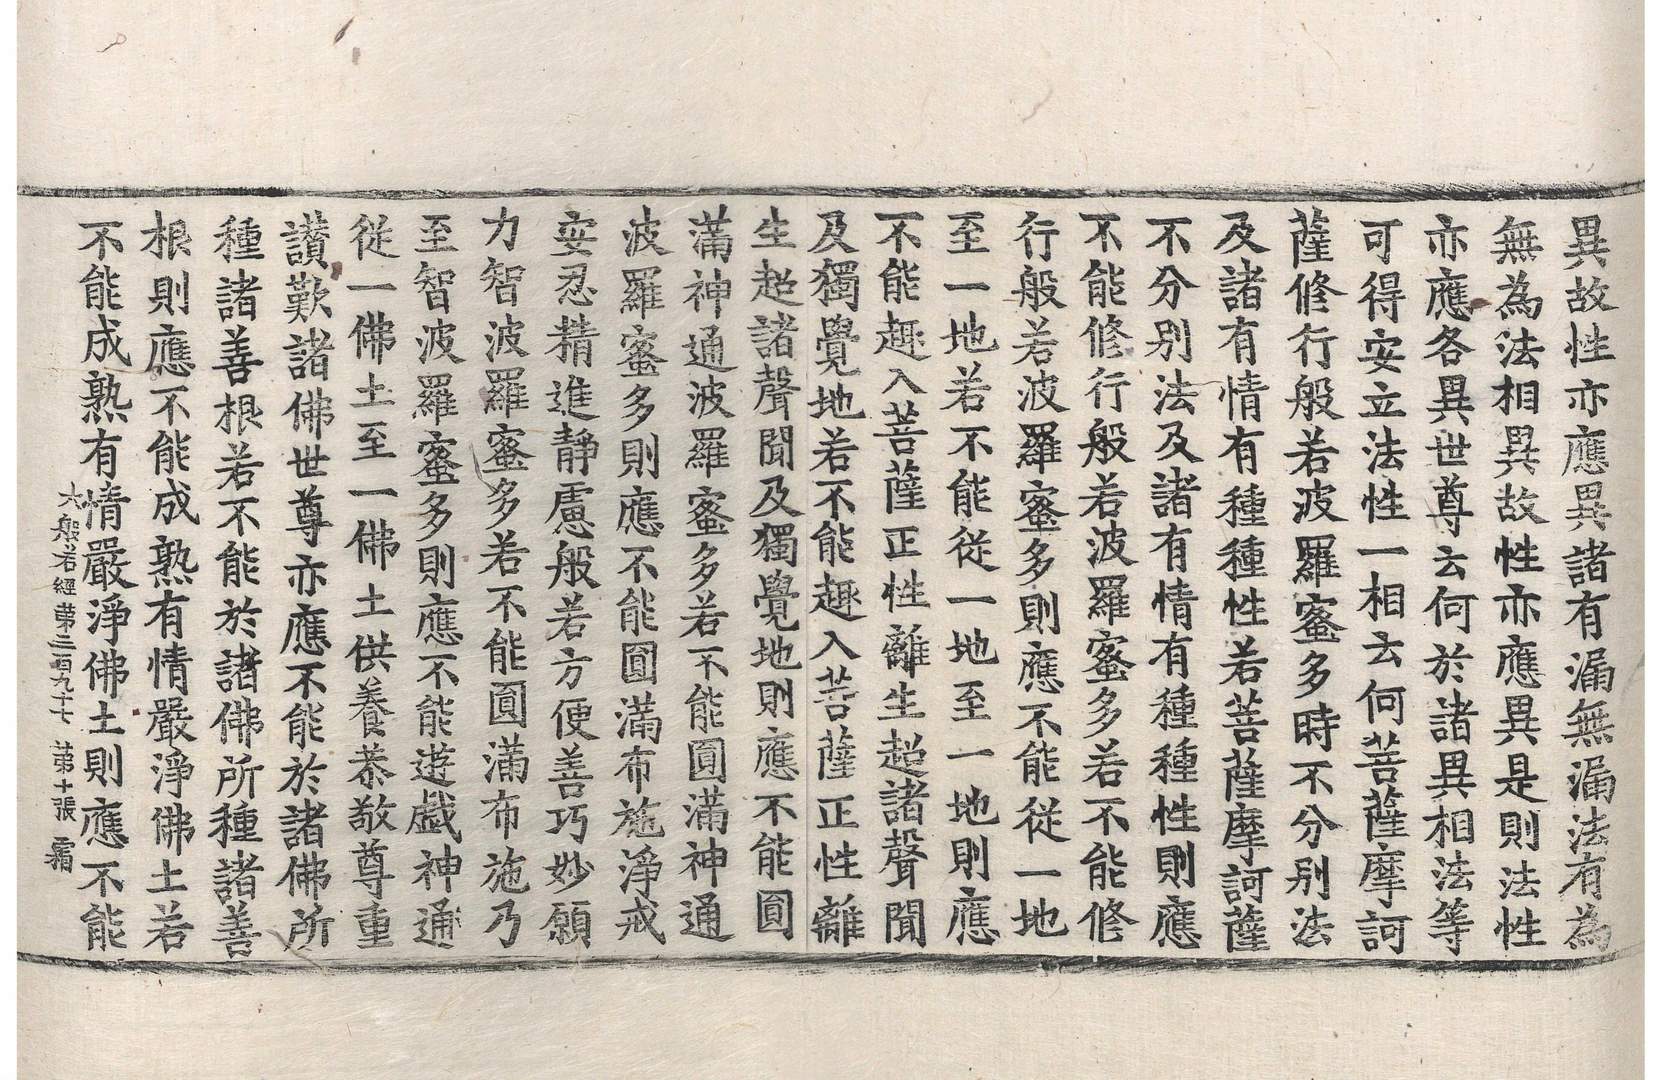 異故性亦應異諸有漏無漏法有為
無為法相異故性亦應異是則法性
亦應各異世尊云何於諸異相法等
可得安立法性一相云何菩薩摩訶
薩修行般若波羅蜜多時不分別法
及諸有情有種種性若菩薩摩訶薩
不分別法及諸有情有種種性則應
不能修行般若波羅蜜多若不能修
行般若波羅蜜多則應不能從一地
至一地若不能從一地至一地則應
不能趣入菩薩正性離生超諸聲聞
及獨覺地若不能趣入菩薩正性離
生超諸聲聞及獨覺地則應不能圓
滿神通波羅蜜多若不能圓滿神通
波羅蜜多則應不能圓滿布施淨戒
安忍精進靜慮般若方便善巧妙願
力智波羅蜜多若不能圓滿布施乃
至智波羅蜜多則應不能遊戲神通
從一佛土至一佛土供養恭敬尊重
讃歎諸佛世尊亦應不能於諸佛所
種諸善根若不能於諸佛所種諸善
根則應不能成熟有情嚴淨佛土若
不能成熟有情嚴淨佛土則應不能
大般若經第三百九十七 第十張 霜